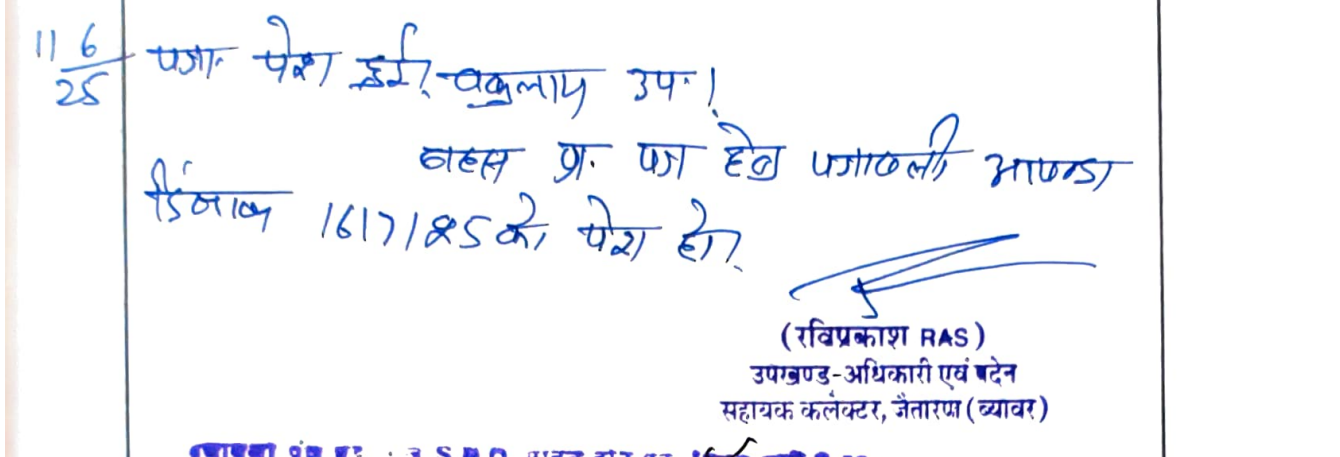 11 6/25 पत्रा. पेश हुई। वकुलाय उप.।
बहस प्रा. पत्र हेतु पत्रावली आयन्दा
दिनांक 16/7/25 को पेश हो।
(रविप्रकाश RAS)
उपखण्ड-अधिकारी एवं पदेन
सहायक कलेक्टर, जैतारण (ब्यावर)